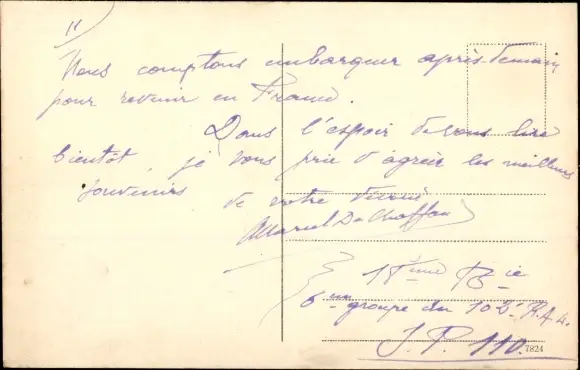 11
Nous comptons embarquer après-demain
pour revenir en France.
Dans l'espoir de vous lire
bientôt, je vous prie d'agréer les meilleurs
souvenirs de votre dévoué
Marcel
18ème Bie
6ème groupe du 102e R.A.L.
S.P. 110.
7824